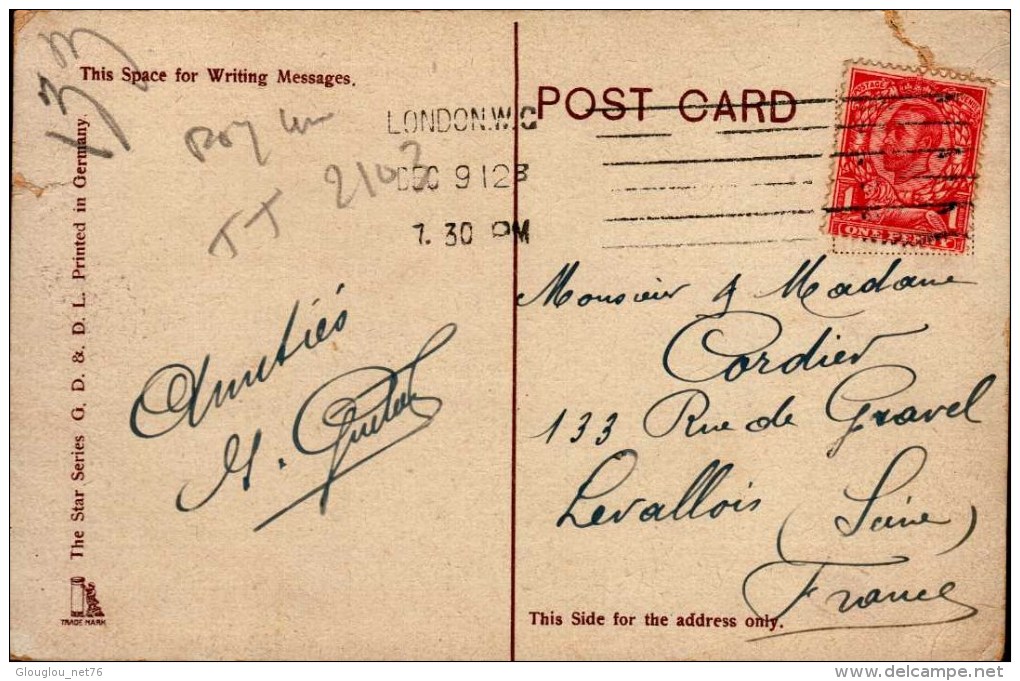 This Space for Writing Messages.
The Star Series G. D. & D. L. Printed in Germany.
TRADE MARK
Amitiés
POST CARD
LONDON.W.C
DEC 9 12 B
7.30 PM
ONE PENNY
Monsieur & Madame
Cordier
133 Rue de Gravel
Levallois (Seine)
France
This Side for the address only.
Glouglou_net76
delcampe.net